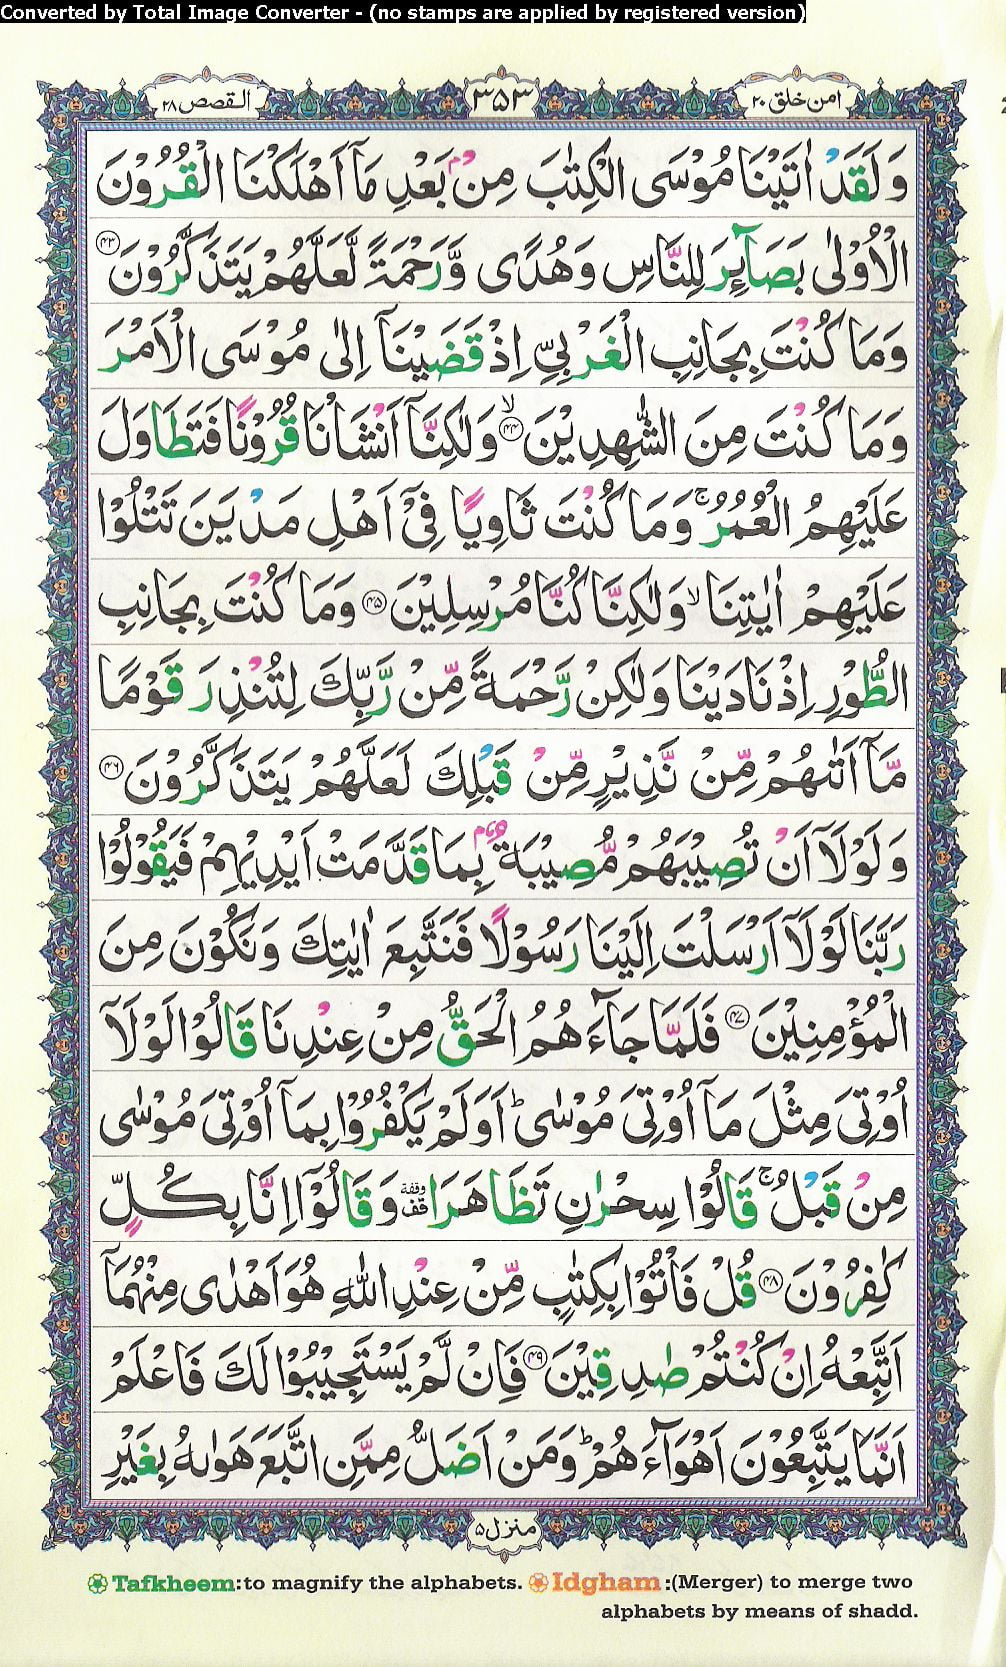 Converted by Total Image Converter - (no stamps are applied by registered version)
القصص ۲۸
۳۵۳
امن خلق ۲۰
وَلَقَدْ اٰتَيْنَا مُوْسَى الْكِتٰبَ مِنْۢ بَعْدِ مَاۤ اَهْلَكْنَا الْقُرُوْنَ
الْاُوْلٰى بَصَآئِرَ لِلنَّاسِ وَهُدًى وَّرَحْمَةً لَّعَلَّهُمْ يَتَذَكَّرُوْنَ ۴۳
وَمَا كُنْتَ بِجَانِبِ الْغَرْبِيِّ اِذْ قَضَيْنَاۤ اِلٰى مُوْسَى الْاَمْرَ
وَمَا كُنْتَ مِنَ الشّٰهِدِيْنَ ۙ۴۴ وَلٰكِنَّاۤ اَنْشَاْنَا قُرُوْنًا فَتَطَاوَلَ
عَلَيْهِمُ الْعُمُرُ ۚ وَمَا كُنْتَ ثَاوِيًا فِيْۤ اَهْلِ مَدْيَنَ تَتْلُوْا
عَلَيْهِمْ اٰيٰتِنَا ۙ وَلٰكِنَّا كُنَّا مُرْسِلِيْنَ ۴۵ وَمَا كُنْتَ بِجَانِبِ
الطُّوْرِ اِذْ نَادَيْنَا وَلٰكِنْ رَّحْمَةً مِّنْ رَّبِّكَ لِتُنْذِرَ قَوْمًا
مَّاۤ اَتٰىهُمْ مِّنْ نَّذِيْرٍ مِّنْ قَبْلِكَ لَعَلَّهُمْ يَتَذَكَّرُوْنَ ۴۶
وَلَوْلَاۤ اَنْ تُصِيْبَهُمْ مُّصِيْبَةٌۢ بِمَا قَدَّمَتْ اَيْدِيْهِمْ فَيَقُوْلُوْا
رَبَّنَا لَوْلَاۤ اَرْسَلْتَ اِلَيْنَا رَسُوْلًا فَنَتَّبِعَ اٰيٰتِكَ وَنَكُوْنَ مِنَ
الْمُؤْمِنِيْنَ ۴۷ فَلَمَّا جَآءَهُمُ الْحَقُّ مِنْ عِنْدِنَا قَالُوْا لَوْلَاۤ
اُوْتِيَ مِثْلَ مَاۤ اُوْتِيَ مُوْسٰى ؕ اَوَلَمْ يَكْفُرُوْا بِمَاۤ اُوْتِيَ مُوْسٰى
مِنْ قَبْلُ ۚ قَالُوْا سِحْرٰنِ تَظَاهَرَا وقفة قف وَقَالُوْۤا اِنَّا بِكُلٍّ
كٰفِرُوْنَ ۴۸ قُلْ فَاْتُوْا بِكِتٰبٍ مِّنْ عِنْدِ اللّٰهِ هُوَ اَهْدٰى مِنْهُمَاۤ
اَتَّبِعْهُ اِنْ كُنْتُمْ صٰدِقِيْنَ ۴۹ فَاِنْ لَّمْ يَسْتَجِيْبُوْا لَكَ فَاعْلَمْ
اَنَّمَا يَتَّبِعُوْنَ اَهْوَآءَهُمْ ؕ وَمَنْ اَضَلُّ مِمَّنِ اتَّبَعَ هَوٰىهُ بِغَيْرِ
منزل ۵
Tafkheem:to magnify the alphabets. Idgham:(Merger) to merge two
alphabets by means of shadd.